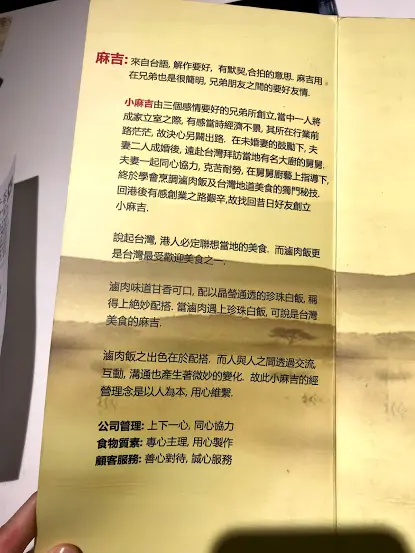 麻吉: 來自台語, 解作要好, 有默契, 合拍的意思. 麻吉用
在兄弟也是很簡明, 兄弟朋友之間的要好友情.
小麻吉由三個感情要好的兄弟所創立, 當中一人將
成家立室之際, 有感當時經濟不景, 其所在行業前
路茫茫, 故決心另闢出路. 在未婚妻的鼓勵下, 夫
妻二人成婚後, 遠赴台灣拜訪當地有名大廚的舅舅.
夫妻一起同心協力, 克苦耐勞, 在舅舅廚藝上指導下,
終於學會烹調滷肉飯及台灣地道美食的獨門秘技.
回港後有感創業之路艱辛, 故找回昔日好友創立
小麻吉.
說起台灣, 港人必定聯想當地的美食. 而滷肉飯更
是台灣最受歡迎美食之一.
滷肉味道甘香可口, 配以晶瑩通透的珍珠白飯, 稱
得上絶妙配搭. 當滷肉遇上珍珠白飯, 可說是台灣
美食的麻吉.
滷肉飯之出色在於配搭. 而人與人之間透過交流,
互動, 溝通也產生著微妙的變化. 故此小麻吉的經
營理念是以人為本, 用心維繫.
公司管理: 上下一心, 同心協力
食物質素: 專心主理, 用心製作
顧客服務: 善心對待, 誠心服務